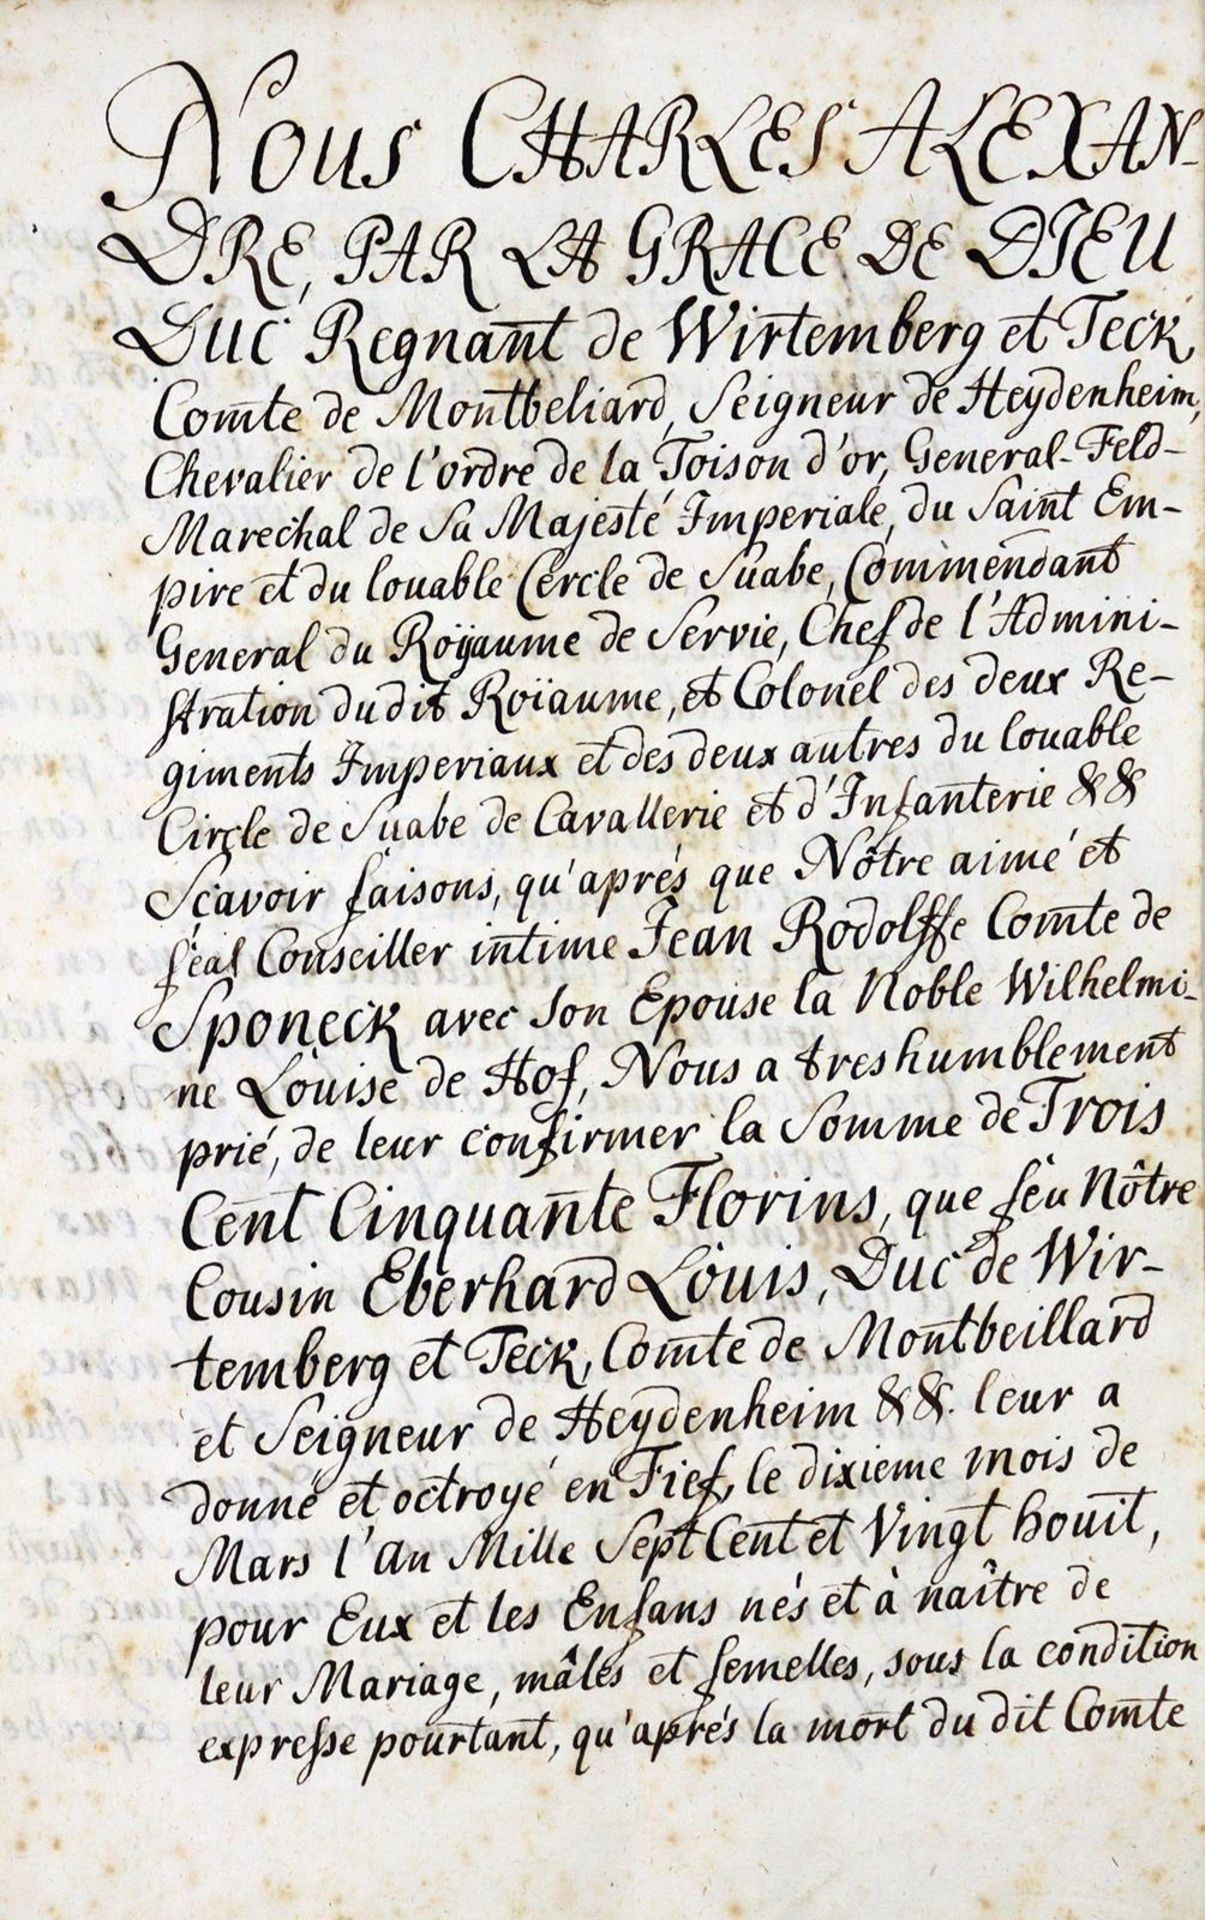 Nous CHARLES ALEXAN-
DRE, PAR LA GRACE DE DIEU
Duc Regnant de Wirtemberg et Teck,
Comte de Montbeliard, Seigneur de Heydenheim,
Chevalier de l'ordre de la Toison d'or, General-Feld-
Marechal de Sa Majesté Imperiale, du Saint Em-
pire et du louable Cercle de Suabe, Commendant
General du Roÿaume de Servie, Chef de l'Admini-
stration dudit Roïaume, et Colonel des deux Re-
giments Imperiaux et des deux autres du louable
Circle de Suabe de Cavallerie et d'Infanterie && 
Sçavoir faisons, qu'aprés que Nôtre aimé et
féal Conseiller intime Jean Rodolffe Comte de
Sponeck avec Son Epouse la Noble Wilhelmi-
ne Louise de Hof, Nous a treshumblement
prié, de leur confirmer la Somme de Trois
Cent Cinquante Florins, que feu Nôtre
Cousin Eberhard Louis, Duc de Wir-
temberg et Teck, Comte de Montbeillard
et Seigneur de Heydenheim &&. leur a
donné et octroyé en Fief, le dixieme mois de
Mars l'an Mille Sept Cent et Vingt houit,
pour Eux et les Enfans nés et à naître de
leur Mariage, mâles et femelles, sous la condition
expresse pourtant, qu'aprés la mort du dit Comte